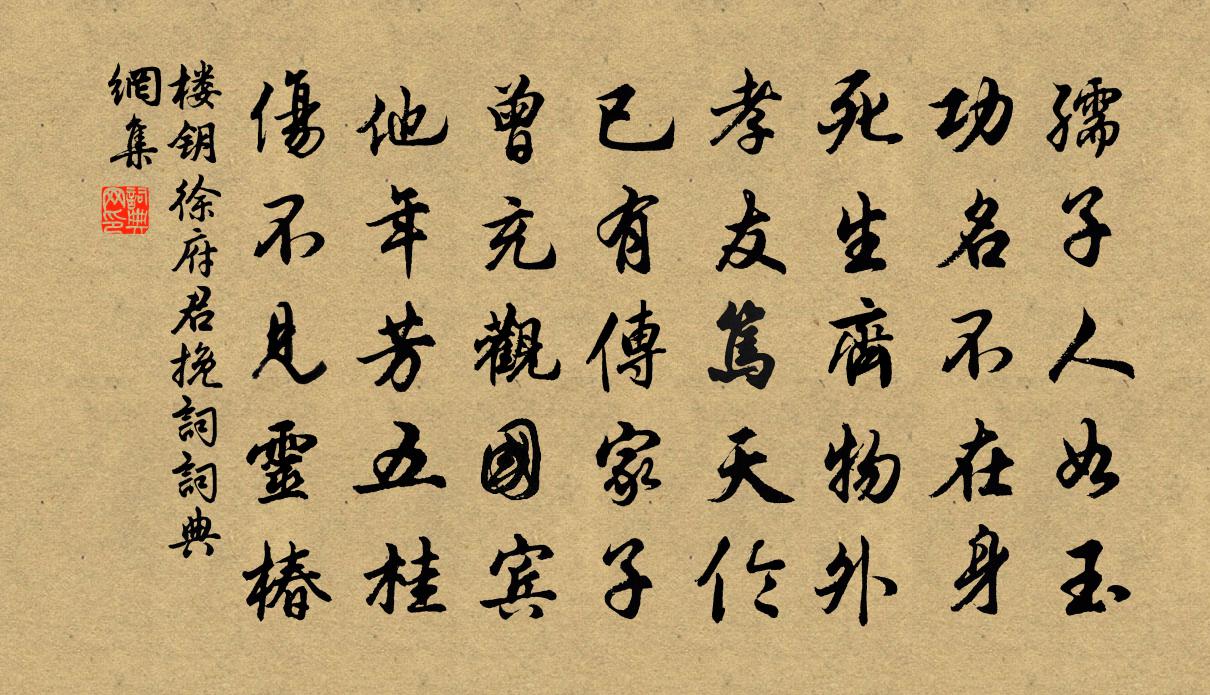 孺子人如玉
功名不在身
死生齊物外
孝友篤天伦
已有傳家子
曾充觀國宾
他年芳五桂
傷不見靈椿
楼钥徐府君挽詞詞典
網集
詞典网印